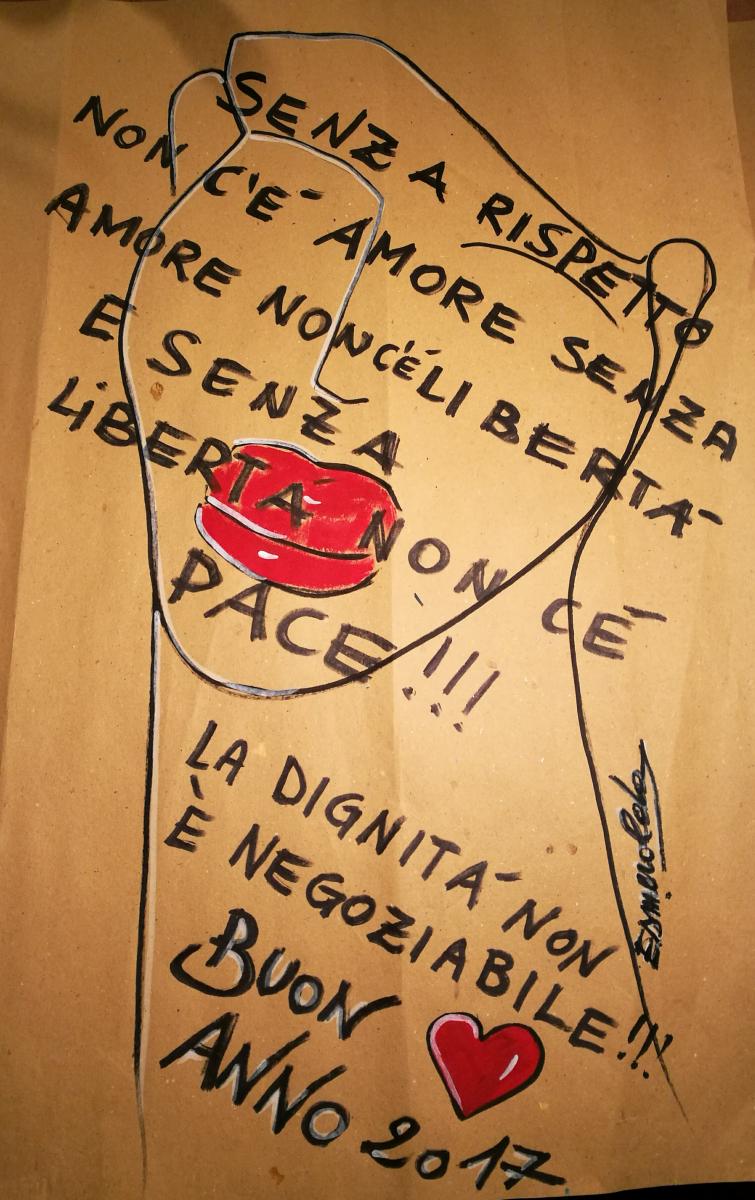 SENZA RISPETTO
NON C'É AMORE SENZA
AMORE NON CÉ LIBERTÁ
E SENZA
LiBERTÁ NON CÉ
PACE!!!
LA DIGNITÁ NON
È NEGOZIABILE!!!
BUON
ANNO 2017